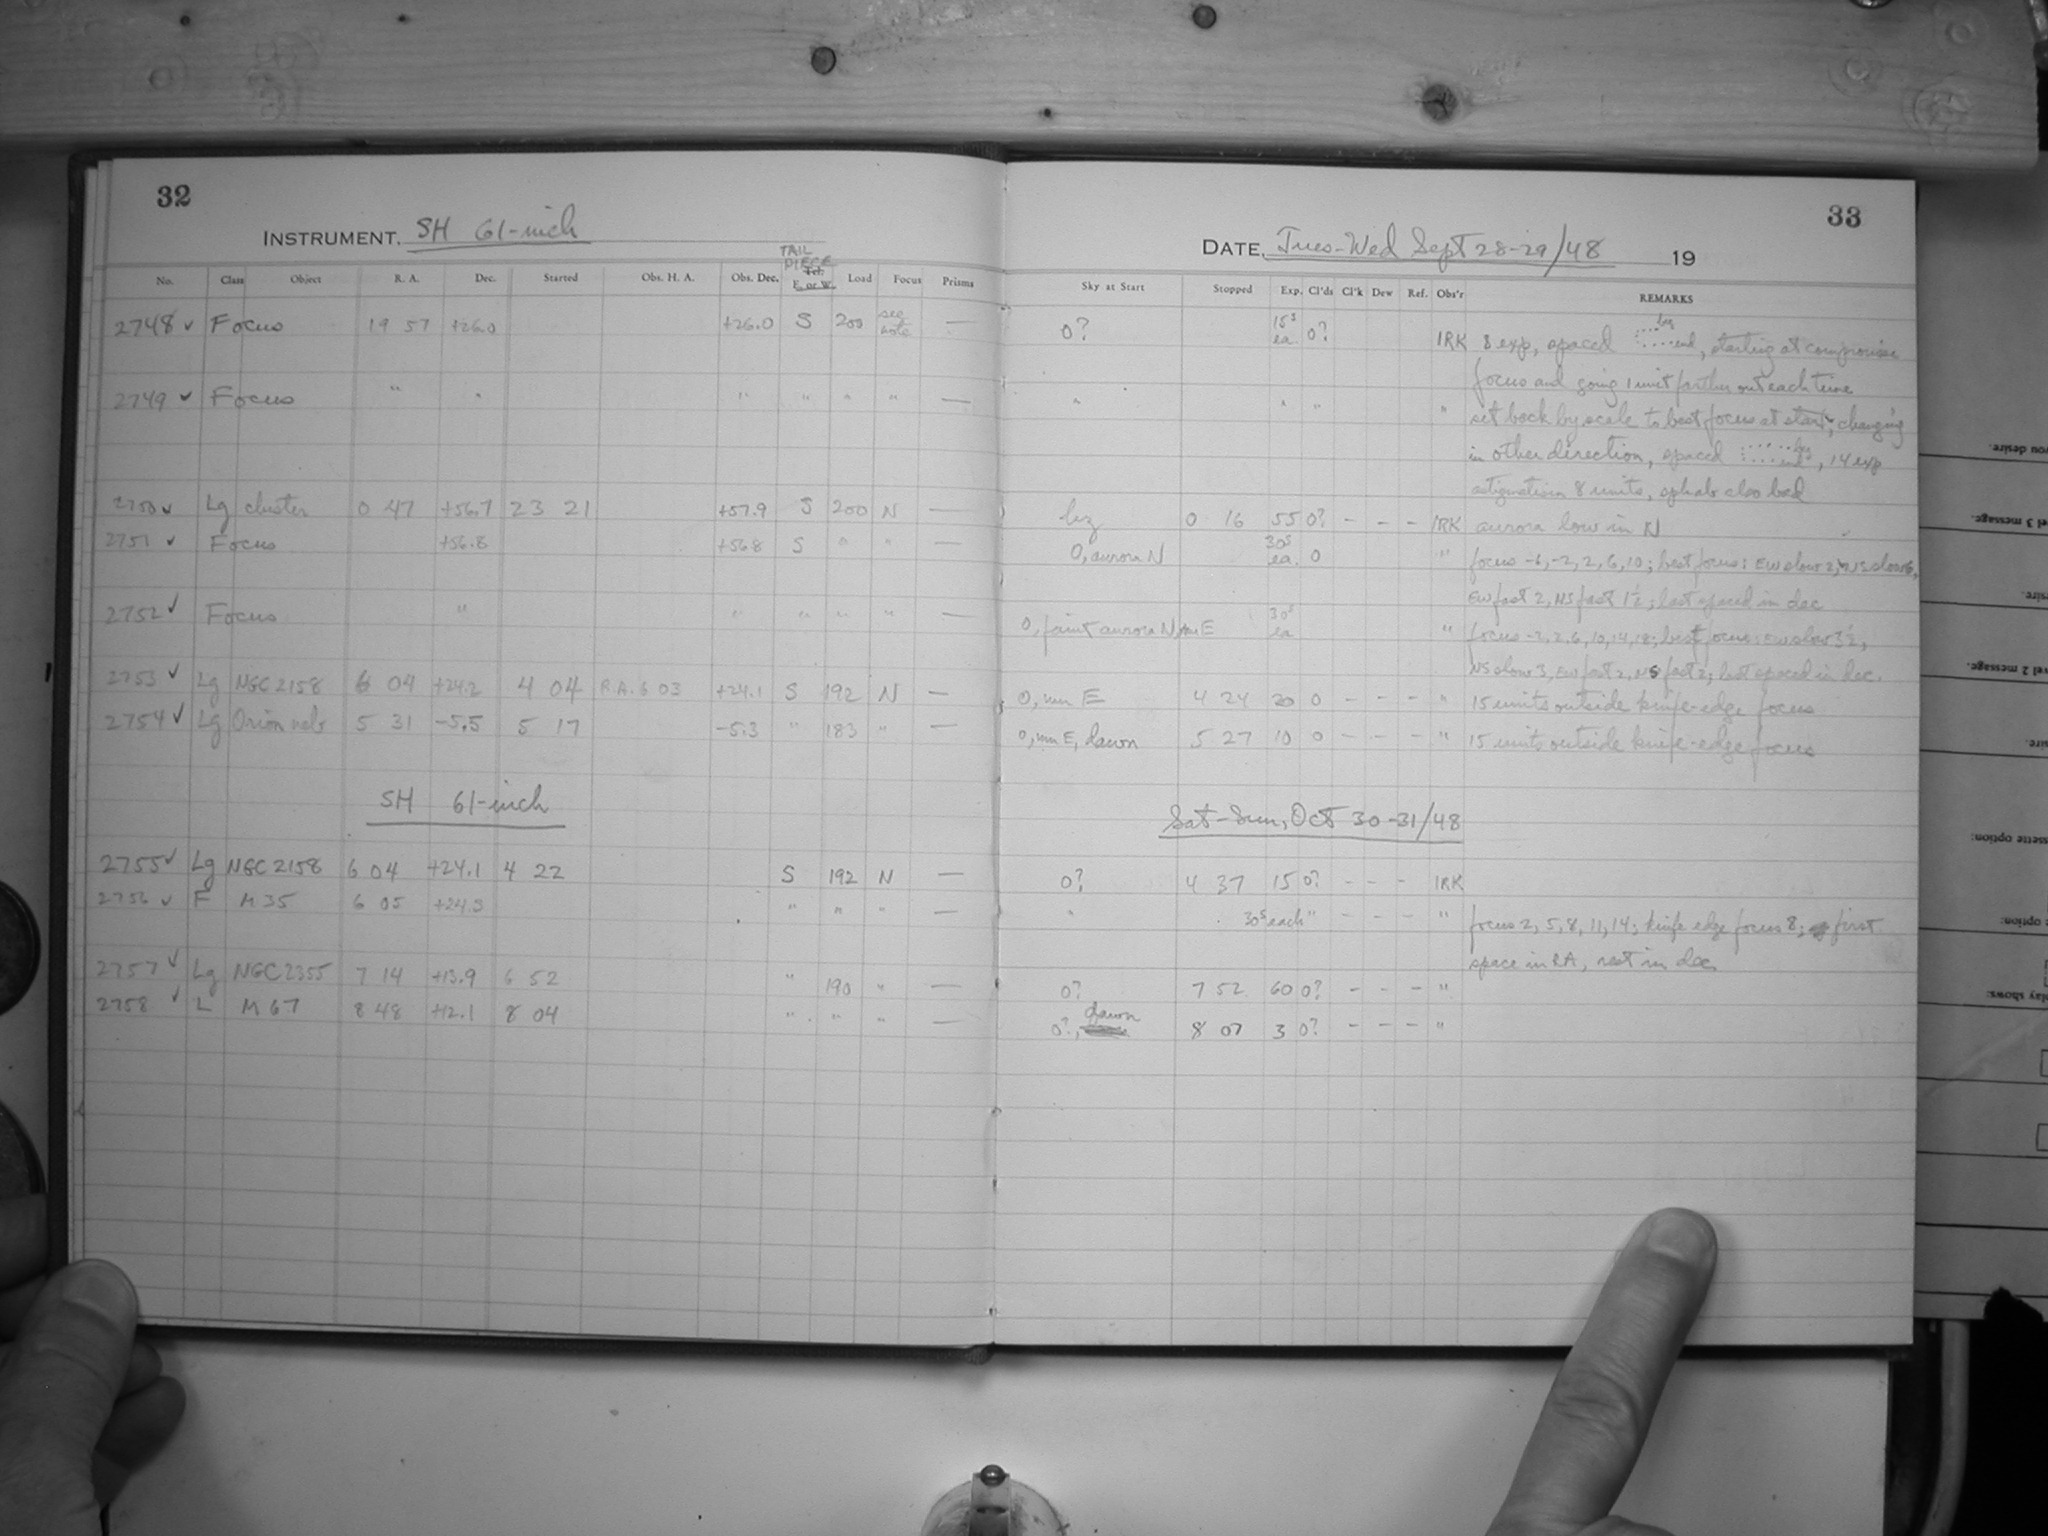 32
INSTRUMENT. SH 61-inch
No. Class Object R. A. Dec. Started Obs. H. A. Obs. Dec. TAIL PIECE Tel. E. or W. Load Focus Prisms
2748 ✓ Focus 19 57 +26.0 +26.0 S 200 see note —
2749 ✓ Focus " " " " " " —
2750 ✓ Lg cluster 0 47 +56.7 23 21 +57.9 S 200 N —
2751 ✓ Focus +56.8 +56.8 S " " —
2752 ✓ Focus " " " " " —
2753 ✓ Lg NGC 2158 6 04 +24.2 4 04 R.A. 6 03 +24.1 S 192 N —
2754 ✓ Lg Orion neb 5 31 -5.5 5 17 -5.3 " 183 " —
SH 61-inch
2755 ✓ Lg NGC 2158 6 04 +24.1 4 22 S 192 N —
2756 ✓ F M 35 6 05 +24.3 " " " —
2757 ✓ Lg NGC 2355 7 14 +13.9 6 52 " 190 " —
2758 ✓ L M 67 8 48 +12.1 8 04 " " " —
33
DATE. Tues-Wed Sept 28-29/48 19
Sky at Start Stopped Exp. Cl'ds Cl'k Dew Ref. Obs'r REMARKS
0? 15s ea. 0? IRK 8 exp, spaced beg end, starting at compromise
focus and going 1 unit farther out each time
" " " " set back by scale to best focus at start, changing
in other direction, spaced beg end, 14 exp
astigmatism 8 units, sphab also bad
hz 0 16 55 0? - - - IRK aurora low in N
0, aurora N 30s ea. 0 " focus -6, -2, 2, 6, 10; best focus: EW slow 2, NS slow 6,
EW fast 2, NS fast 1½; last spaced in dec
0, faint aurora N, mn E 30s ea " focus -2, 2, 6, 10, 14, 18; best focus: EW slow 3½,
NS slow 3, EW fast 2, NS fast 2; last spaced in dec.
0, mn E 4 24 20 0 - - - " 15 units outside knife-edge focus
0, mn E, dawn 5 27 10 0 - - - " 15 units outside knife-edge focus
Sat-Sun, Oct 30-31/48
0? 4 37 15 0? - - - IRK
" 30s each " - - - " focus 2, 5, 8, 11, 14; knife edge focus 8; first
space in RA, rest in dec
0? 7 52 60 0? - - - "
0?, dawn 8 07 3 0? - - - "
you desire.
el 3 message.
sire.
vel 2 message.
ssette option:
option:
play shows: